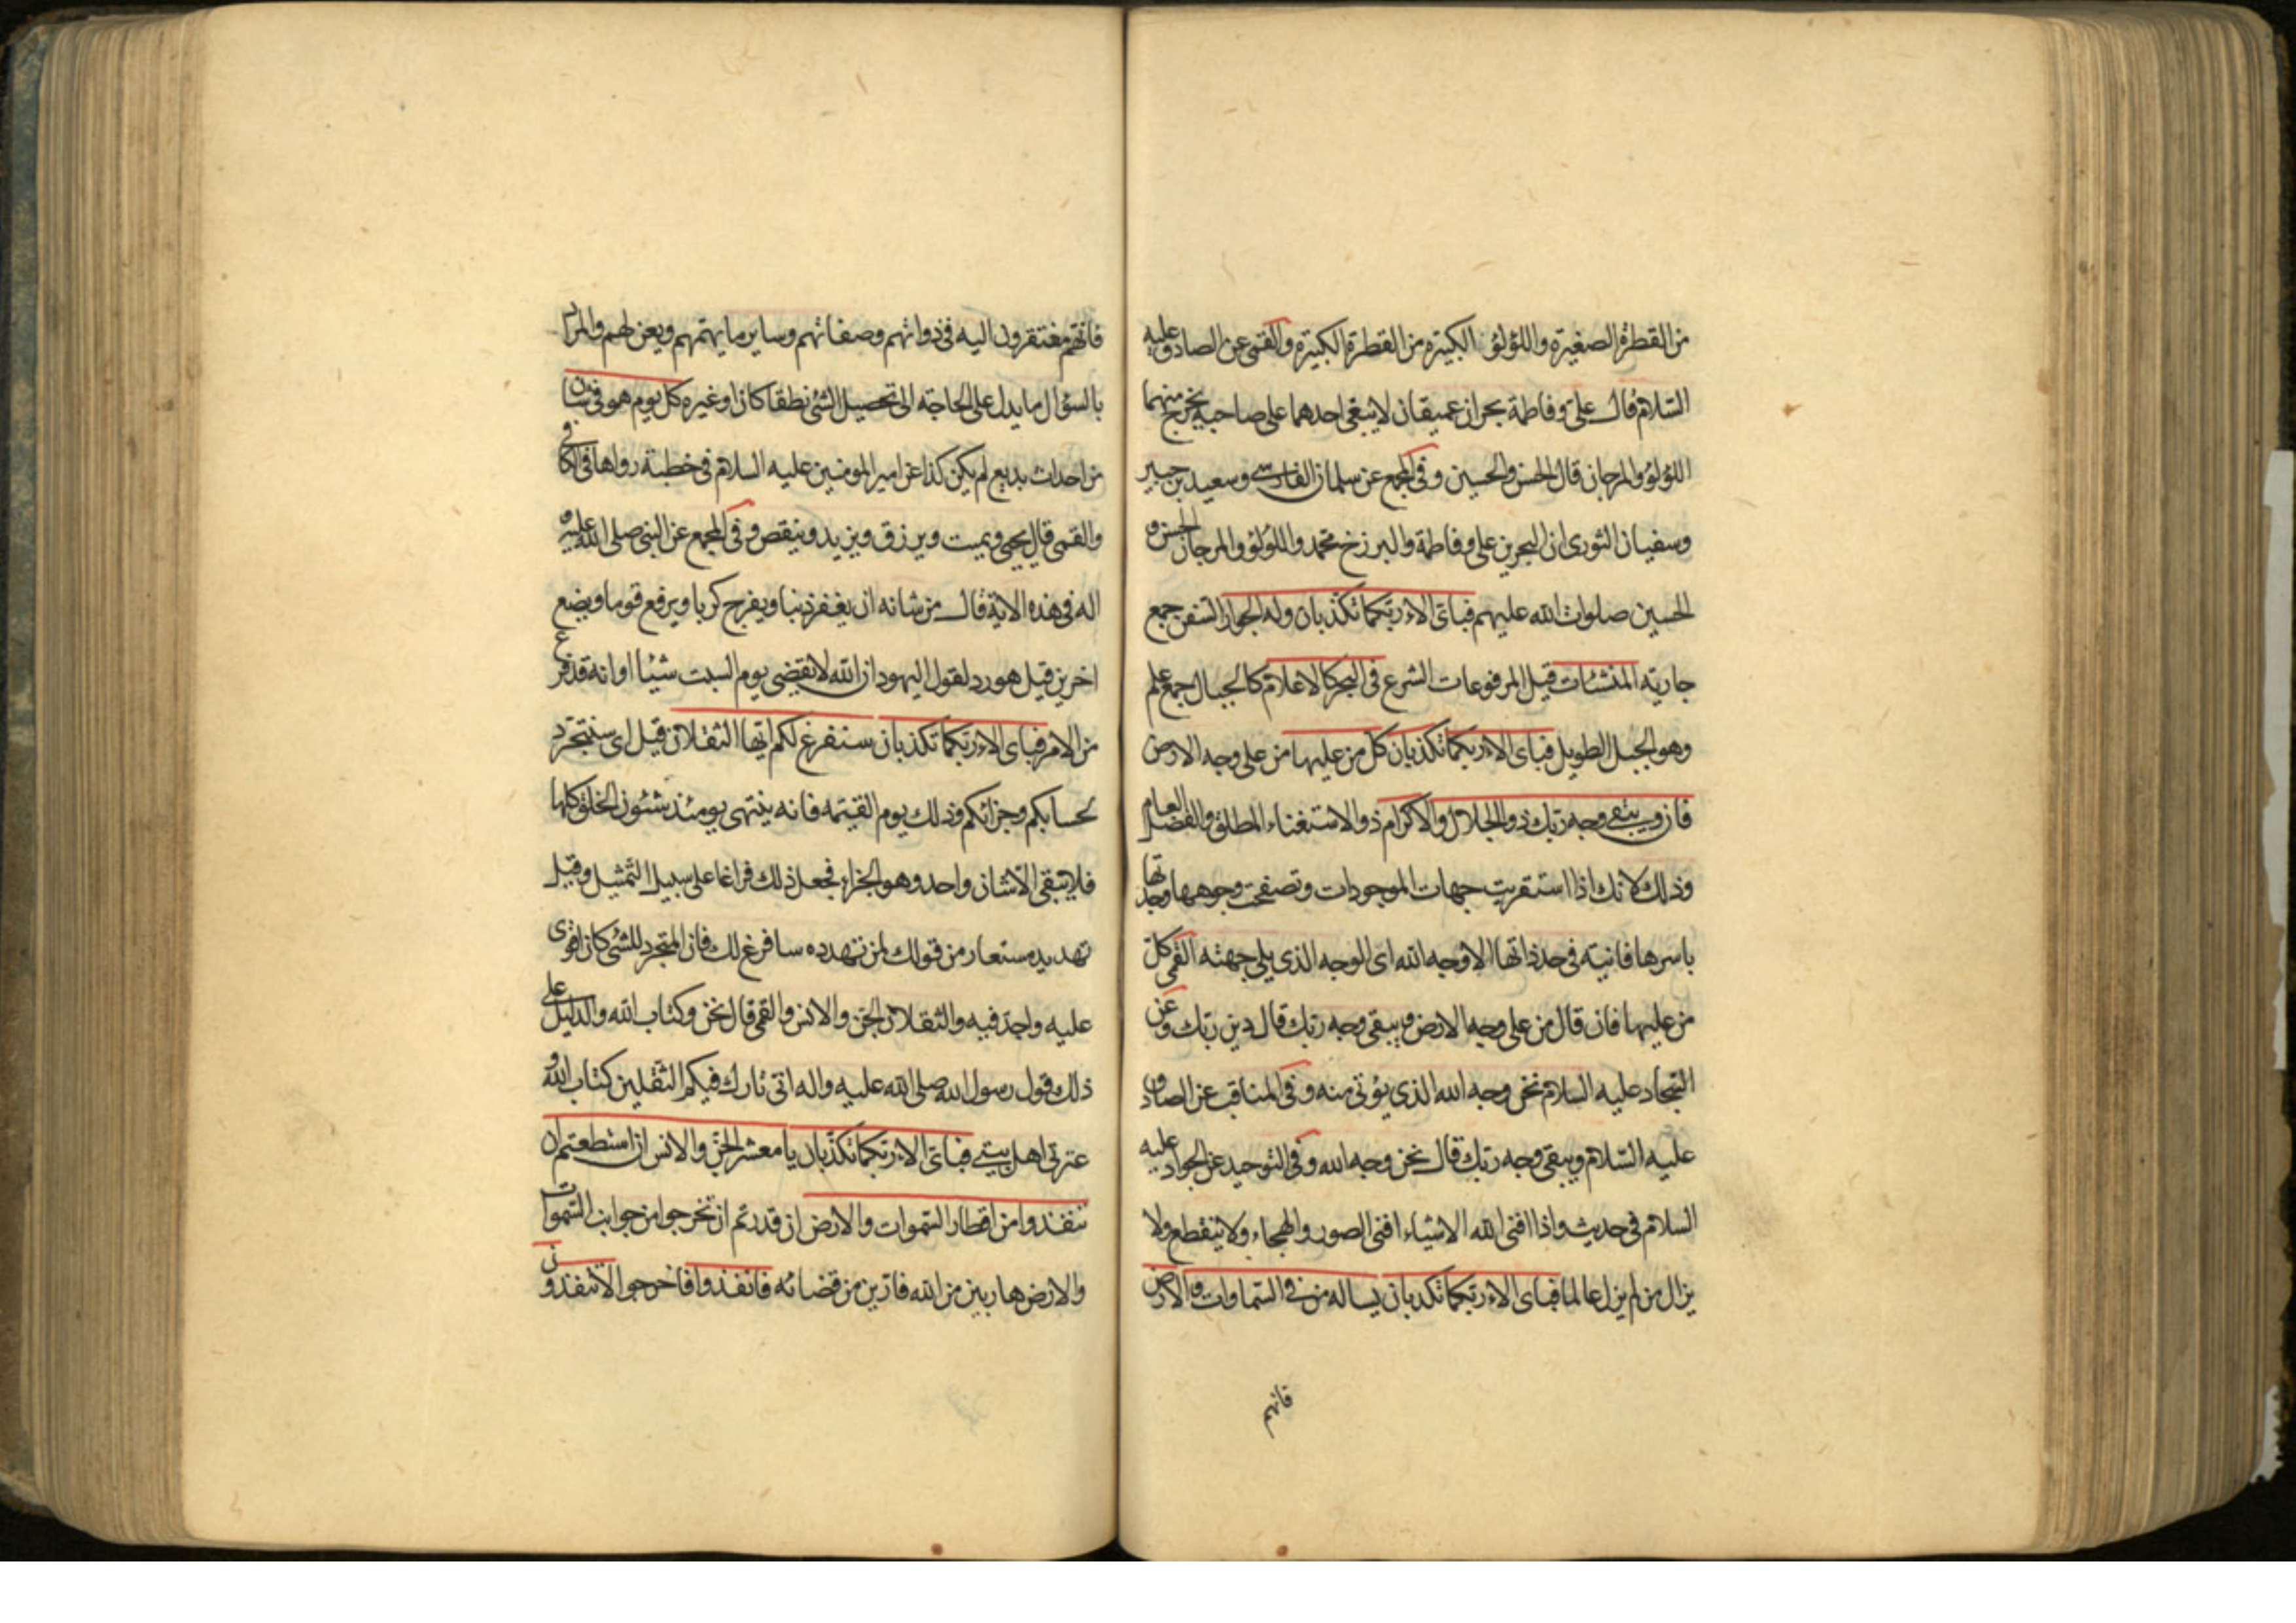 من القطرة الصغيرة واللؤلؤ الكبيرة من القطرة الكبيرة والقمى عن الصادق عليه
السلام قال على وفاطمة بحران عميقان لا يبغى احدهما على صاحبه يخرج منهما
اللؤلؤ والمرجان قال الحسن والحسين وفى المجمع عن سلمان الفارسى وسعيد بن جبير
وسفيان الثورى ان البحرين على وفاطمة والبرزخ محمد واللؤلؤ والمرجان الحسن و
الحسين صلوات الله عليهم فباى الاء ربكما تكذبان وله الجوار السفن جمع
جارية المنشئات قيل المرفوعات الشرع فى البحر كالاعلام كالجبال جمع علم
وهو الجبل الطويل فباى الاء ربكما تكذبان كل من عليها من على وجه الارض
فان ويبقى وجه ربك ذو الجلال والاكرام ذو الاستغناء المطلق والفضل العام
وذلك لانك اذا استقريت جهات الموجودات وتصفحت وجوهها وجدتها
باسرها فانية فى حد ذاتها الا وجه الله اى الوجه الذى يلى جهته القمى كل
من عليها فان قال من على وجه الارض ويبقى وجه ربك قال دين ربك وعن
السجاد عليه السلام نحن وجه الله الذى يؤتى منه وفى المناقب عن الصادق
عليه السلام ويبقى وجه ربك قال نحن وجه الله وفى التوحيد عن الجواد عليه
السلام فى حديث واذا افنى الله الاشياء افنى الصور والهجاء ولا ينقطع ولا
يزال من لم يزل عالما فباى الاء ربكما تكذبان يساله من فى السماوات والارض
فانهم
فانهم مفتقرون اليه فى ذواتهم وصفاتهم وساير ما يهمهم ويعن لهم والمراد
بالسؤال ما يدل على الحاجة الى تحصيل الشئ نطقا كان او غيره كل يوم هو فى شان
من احداث بديع لم يكن كذا عن امير المومنين عليه السلام فى خطبة رواها فى الكافى
والقمى قال يحيى ويميت ويرزق ويزيد وينقص وفى المجمع عن النبى صلى الله عليه و
اله فى هذه الاية قال من شانه ان يغفر ذنبا ويفرج كربا ويرفع قوما ويضع
اخرين قيل هو رد لقول اليهود ان الله لا يقضى يوم السبت شيئا او انه قد فرغ
من الامر فباى الاء ربكما تكذبان سنفرغ لكم ايها الثقلان قيل اى سنتجرد
لحسابكم وجزائكم وذلك يوم القيمة فانه ينتهى يومئذ شئون الخلق كلها
فلا يبقى الا شان واحد وهو الجزاء فجعل ذلك فراغا على سبيل التمثيل وقيل
تهديد مستعار من قولك لمن تهدده سافرغ لك فان المتجرد للشئ كان اقوى
عليه واجد فيه والثقلان الجن والانس والقمى قال نحن وكتاب الله والدليل على
ذلك قول رسول الله صلى الله عليه واله انى تارك فيكم الثقلين كتاب الله و
عترتى اهل بيتى فباى الاء ربكما تكذبان يا معشر الجن والانس ان استطعتم ان
تنفذوا من اقطار السموات والارض ان قدرتم ان تخرجوا من جوانب السموات
والارض هاربين من الله فارين من قضائه فانفذوا فاخرجوا لا تنفذون